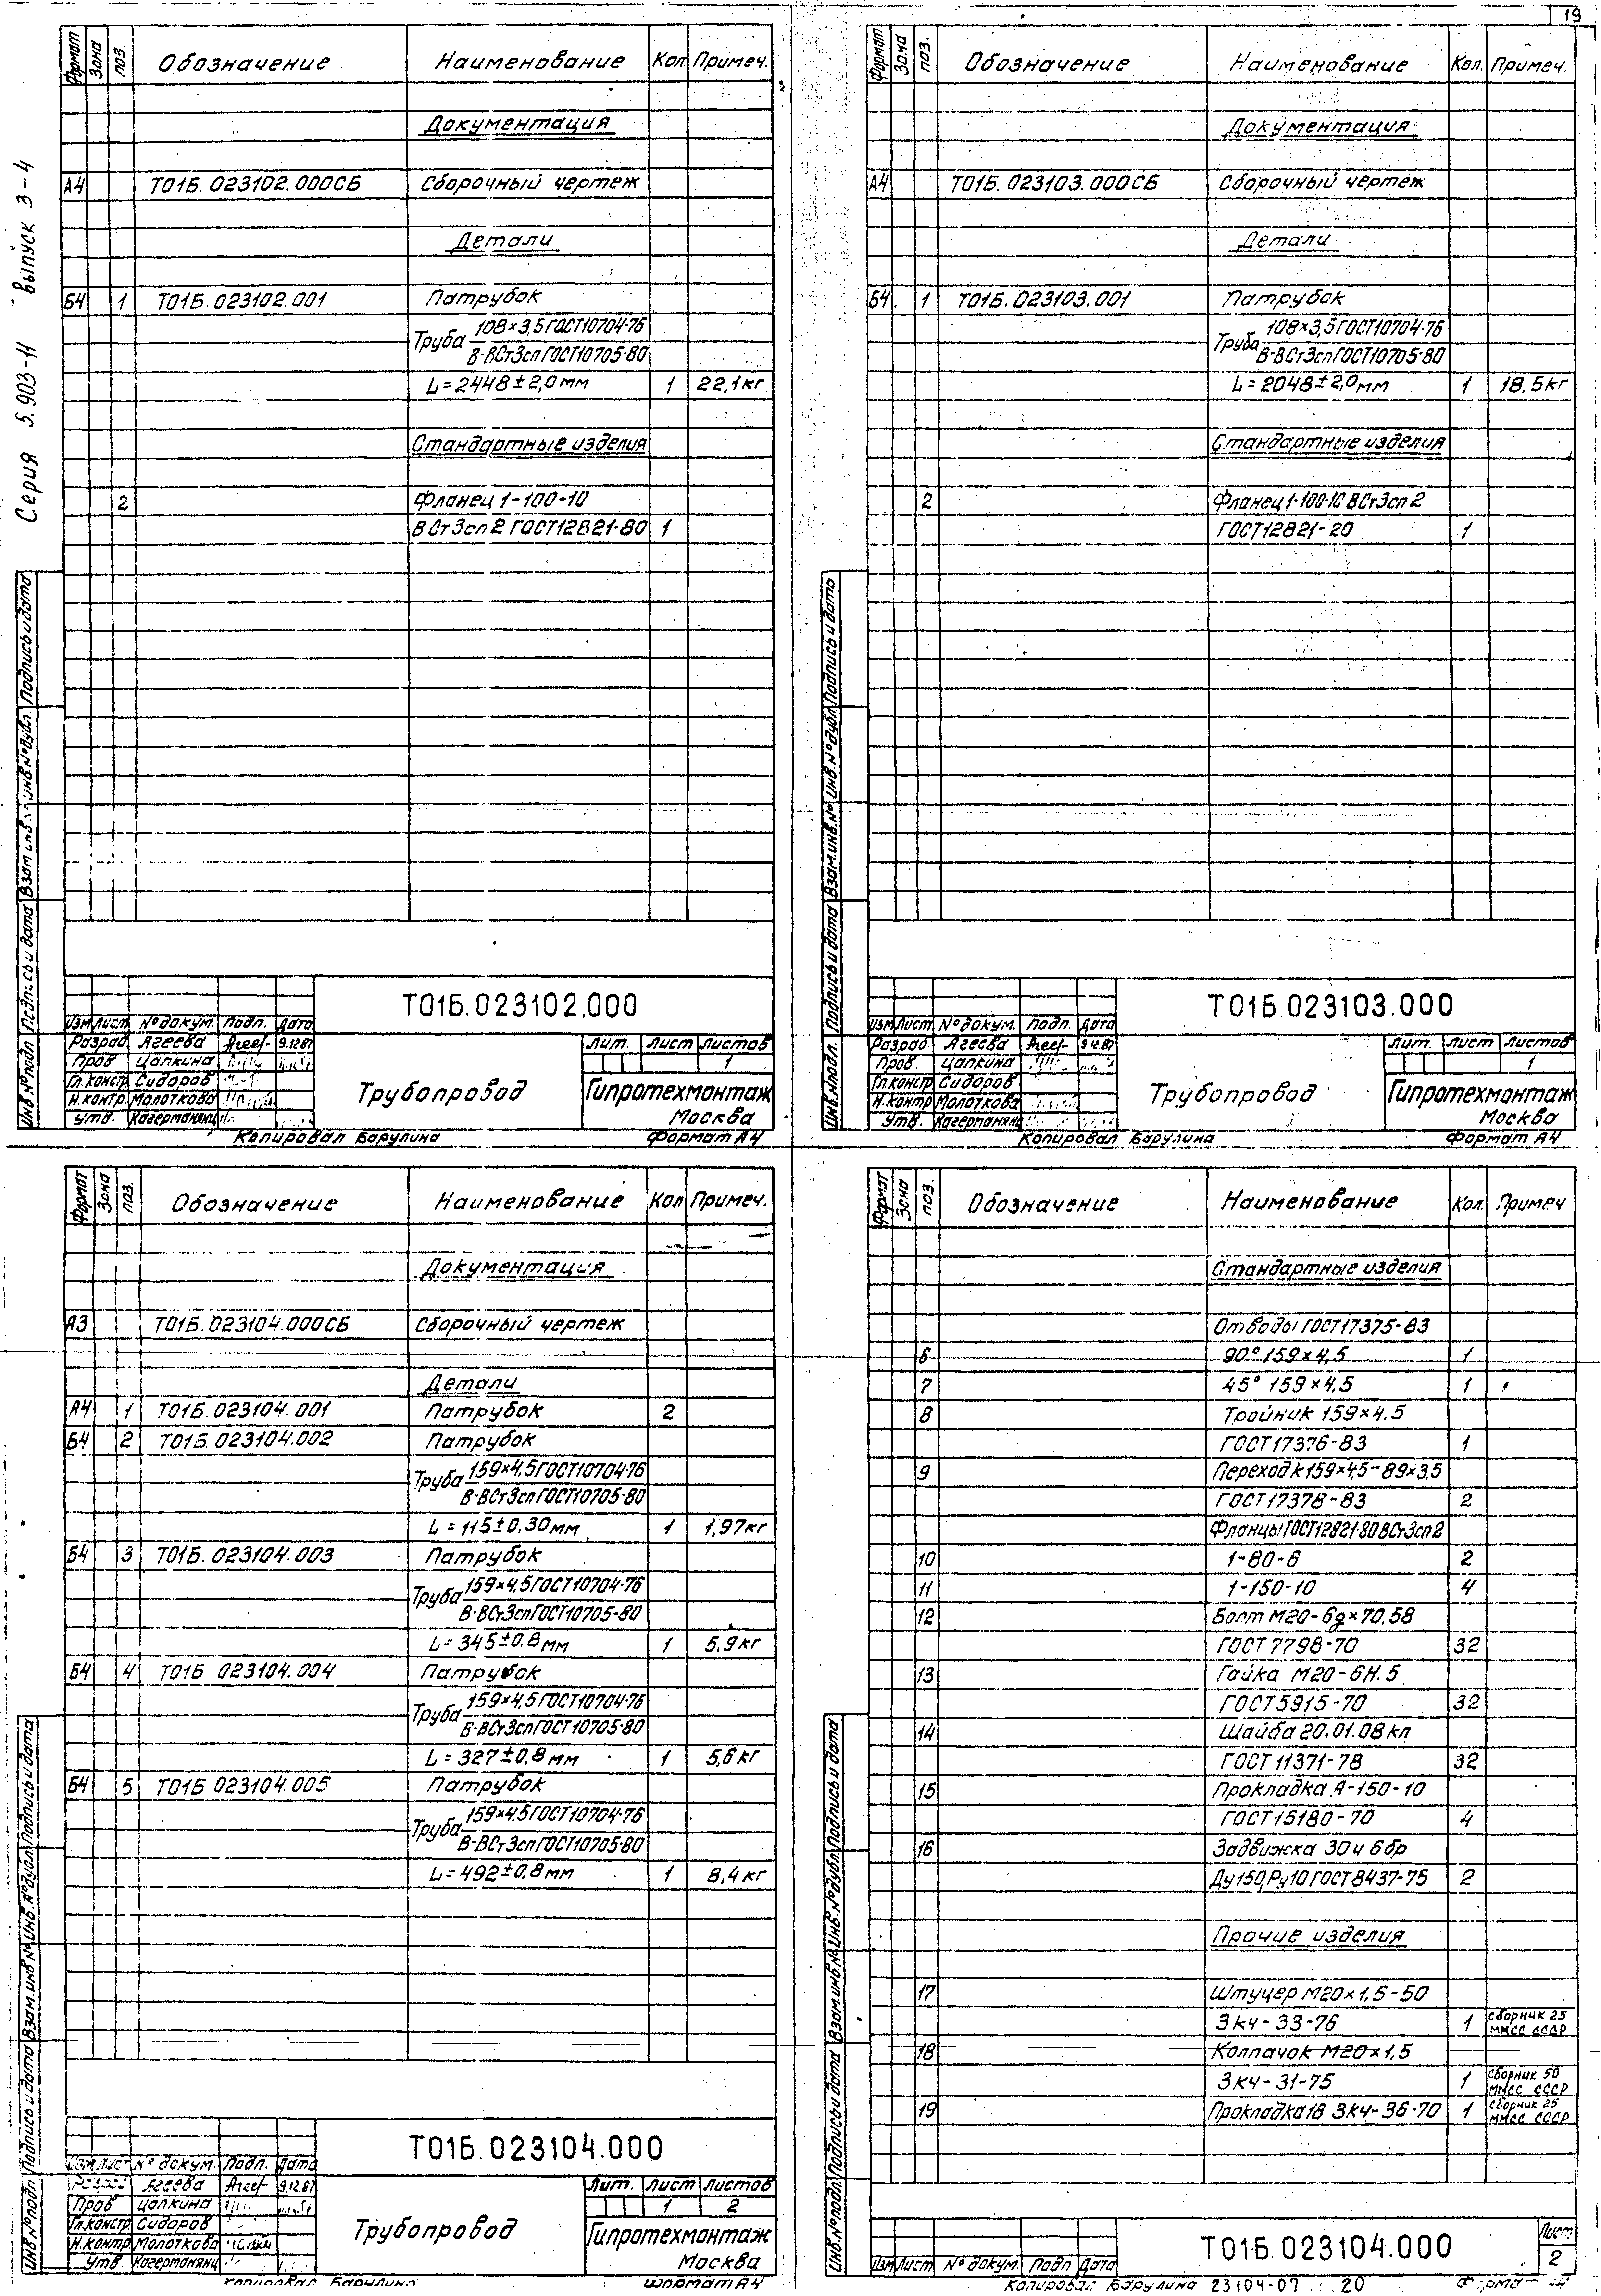 19
Серия 5.903-11 выпуск 3-4
Формат Зона поз. Обозначение Наименование Кол Примеч.
Документация
А4 Т01Б.023102.000СБ Сборочный чертеж
Детали
Б4 1 Т01Б.023102.001 Патрубок
Труба 108×3,5 ГОСТ10704-76
В-ВСт3сп ГОСТ10705-80
L=2448±2,0мм 1 22,1кг
Стандартные изделия
2 Фланец 1-100-10
ВСт3сп2 ГОСТ12821-80 1
Инв.№подл Подпись и дата Взам.инв. Инв.№дубл. Подпись и дата
Т01Б.023102.000
Изм Лист №докум. Подп. Дата
Разраб. Агеева Агееf- 9.12.87
Пров Цапкина
Гл.констр Сидоров
Н.контр Молоткова
Утв.
Трубопровод
Лит. Лист Листов
1
Гипротехмонтаж
Москва
Копировал Барулина Формат А4
Формат Зона поз. Обозначение Наименование Кол. Примеч.
Документация
А4 Т01Б.023103.000СБ Сборочный чертеж
Детали
Б4. 1 Т01Б.023103.001 Патрубок
Труба 108×3,5 ГОСТ10704-76
В-ВСт3сп ГОСТ10705-80
L=2048±2,0мм 1 18,5кг
Стандартные изделия
2 Фланец 1-100-10 ВСт3сп2
ГОСТ12821-20 1
Инв.№подл. Подпись и дата Взам.инв.№ Инв.№дубл Подпись и дата
Т01Б.023103.000
Изм Лист №докум. Подп. Дата
Разраб. Агеева Агееf- 9.12.87
Пров Цапкина
Гл.констр Сидоров
Н.контр Молоткова
Утв.
Трубопровод
Лит. Лист Листов
1
Гипротехмонтаж
Москва
Копировал Барулина Формат А4
Формат Зона поз. Обозначение Наименование Кол Примеч.
Документация
А3 Т01Б.023104.000СБ Сборочный чертеж
Детали
А4 1 Т01Б.023104.001 Патрубок 2
Б4 2 Т01Б.023104.002 Патрубок
Труба 159×4,5 ГОСТ10704-76
В-ВСт3сп ГОСТ10705-80
L=115±0,30мм 1 1,97кг
Б4 3 Т01Б.023104.003 Патрубок
Труба 159×4,5 ГОСТ10704-76
В-ВСт3сп ГОСТ10705-80
L=345±0,8мм 1 5,9кг
Б4 4 Т01Б 023104.004 Патрубок
Труба 159×4,5 ГОСТ10704-76
В-ВСт3сп ГОСТ10705-80
L=327±0,8мм 1 5,6кг
Б4 5 Т01Б 023104.005 Патрубок
Труба 159×4,5 ГОСТ10704-76
В-ВСт3сп ГОСТ10705-80
L=492±0,8мм 1 8,4кг
Инв.№подл Подпись и дата Взам.инв.№ Инв.№дубл Подпись и дата
Т01Б.023104.000
Изм Лист № докум. Подп. Дата
Разраб Агеева Агееf- 9.12.87
Пров. Цапкина
Гл.констр Сидоров
Н.контр Молоткова
Утв
Трубопровод
Лит. Лист Листов
1 2
Гипротехмонтаж
Москва
Копировал Барулина Формат А4
Формат Зона поз. Обозначение Наименование Кол. Примеч
Стандартные изделия
Отводы ГОСТ17375-83
6 90° 159×4,5 1
7 45° 159×4,5 1
8 Тройник 159×4,5
ГОСТ17376-83 1
9 Переход К159×4,5-89×3,5
ГОСТ17378-83 2
Фланцы ГОСТ12821-80 ВСт3сп2
10 1-80-6 2
11 1-150-10 4
12 Болт М20-6g×70.58
ГОСТ 7798-70 32
13 Гайка М20-6Н.5
ГОСТ5915-70 32
14 Шайба 20.01.08кп
ГОСТ 11371-78 32
15 Прокладка А-150-10
ГОСТ15180-70 4
16 Задвижка 30ч6бр
Ду150,Ру10 ГОСТ8437-75 2
Прочие изделия
17 Штуцер М20×1,5-50
ЗК4-33-76 1 сборник 25 ММСС СССР
18 Колпачок М20×1,5
ЗК4-31-75 1 сборник 50 ММСС СССР
19 Прокладка18 ЗК4-36-70 1 сборник 25 ММСС СССР
Инв.№подл. Подпись и дата Взам.инв.№ Инв.№дубл Подпись и дата
Т01Б.023104.000
Лист
2
Изм Лист № докум. Подп. Дата
Копировал Барулина 23104-07 20